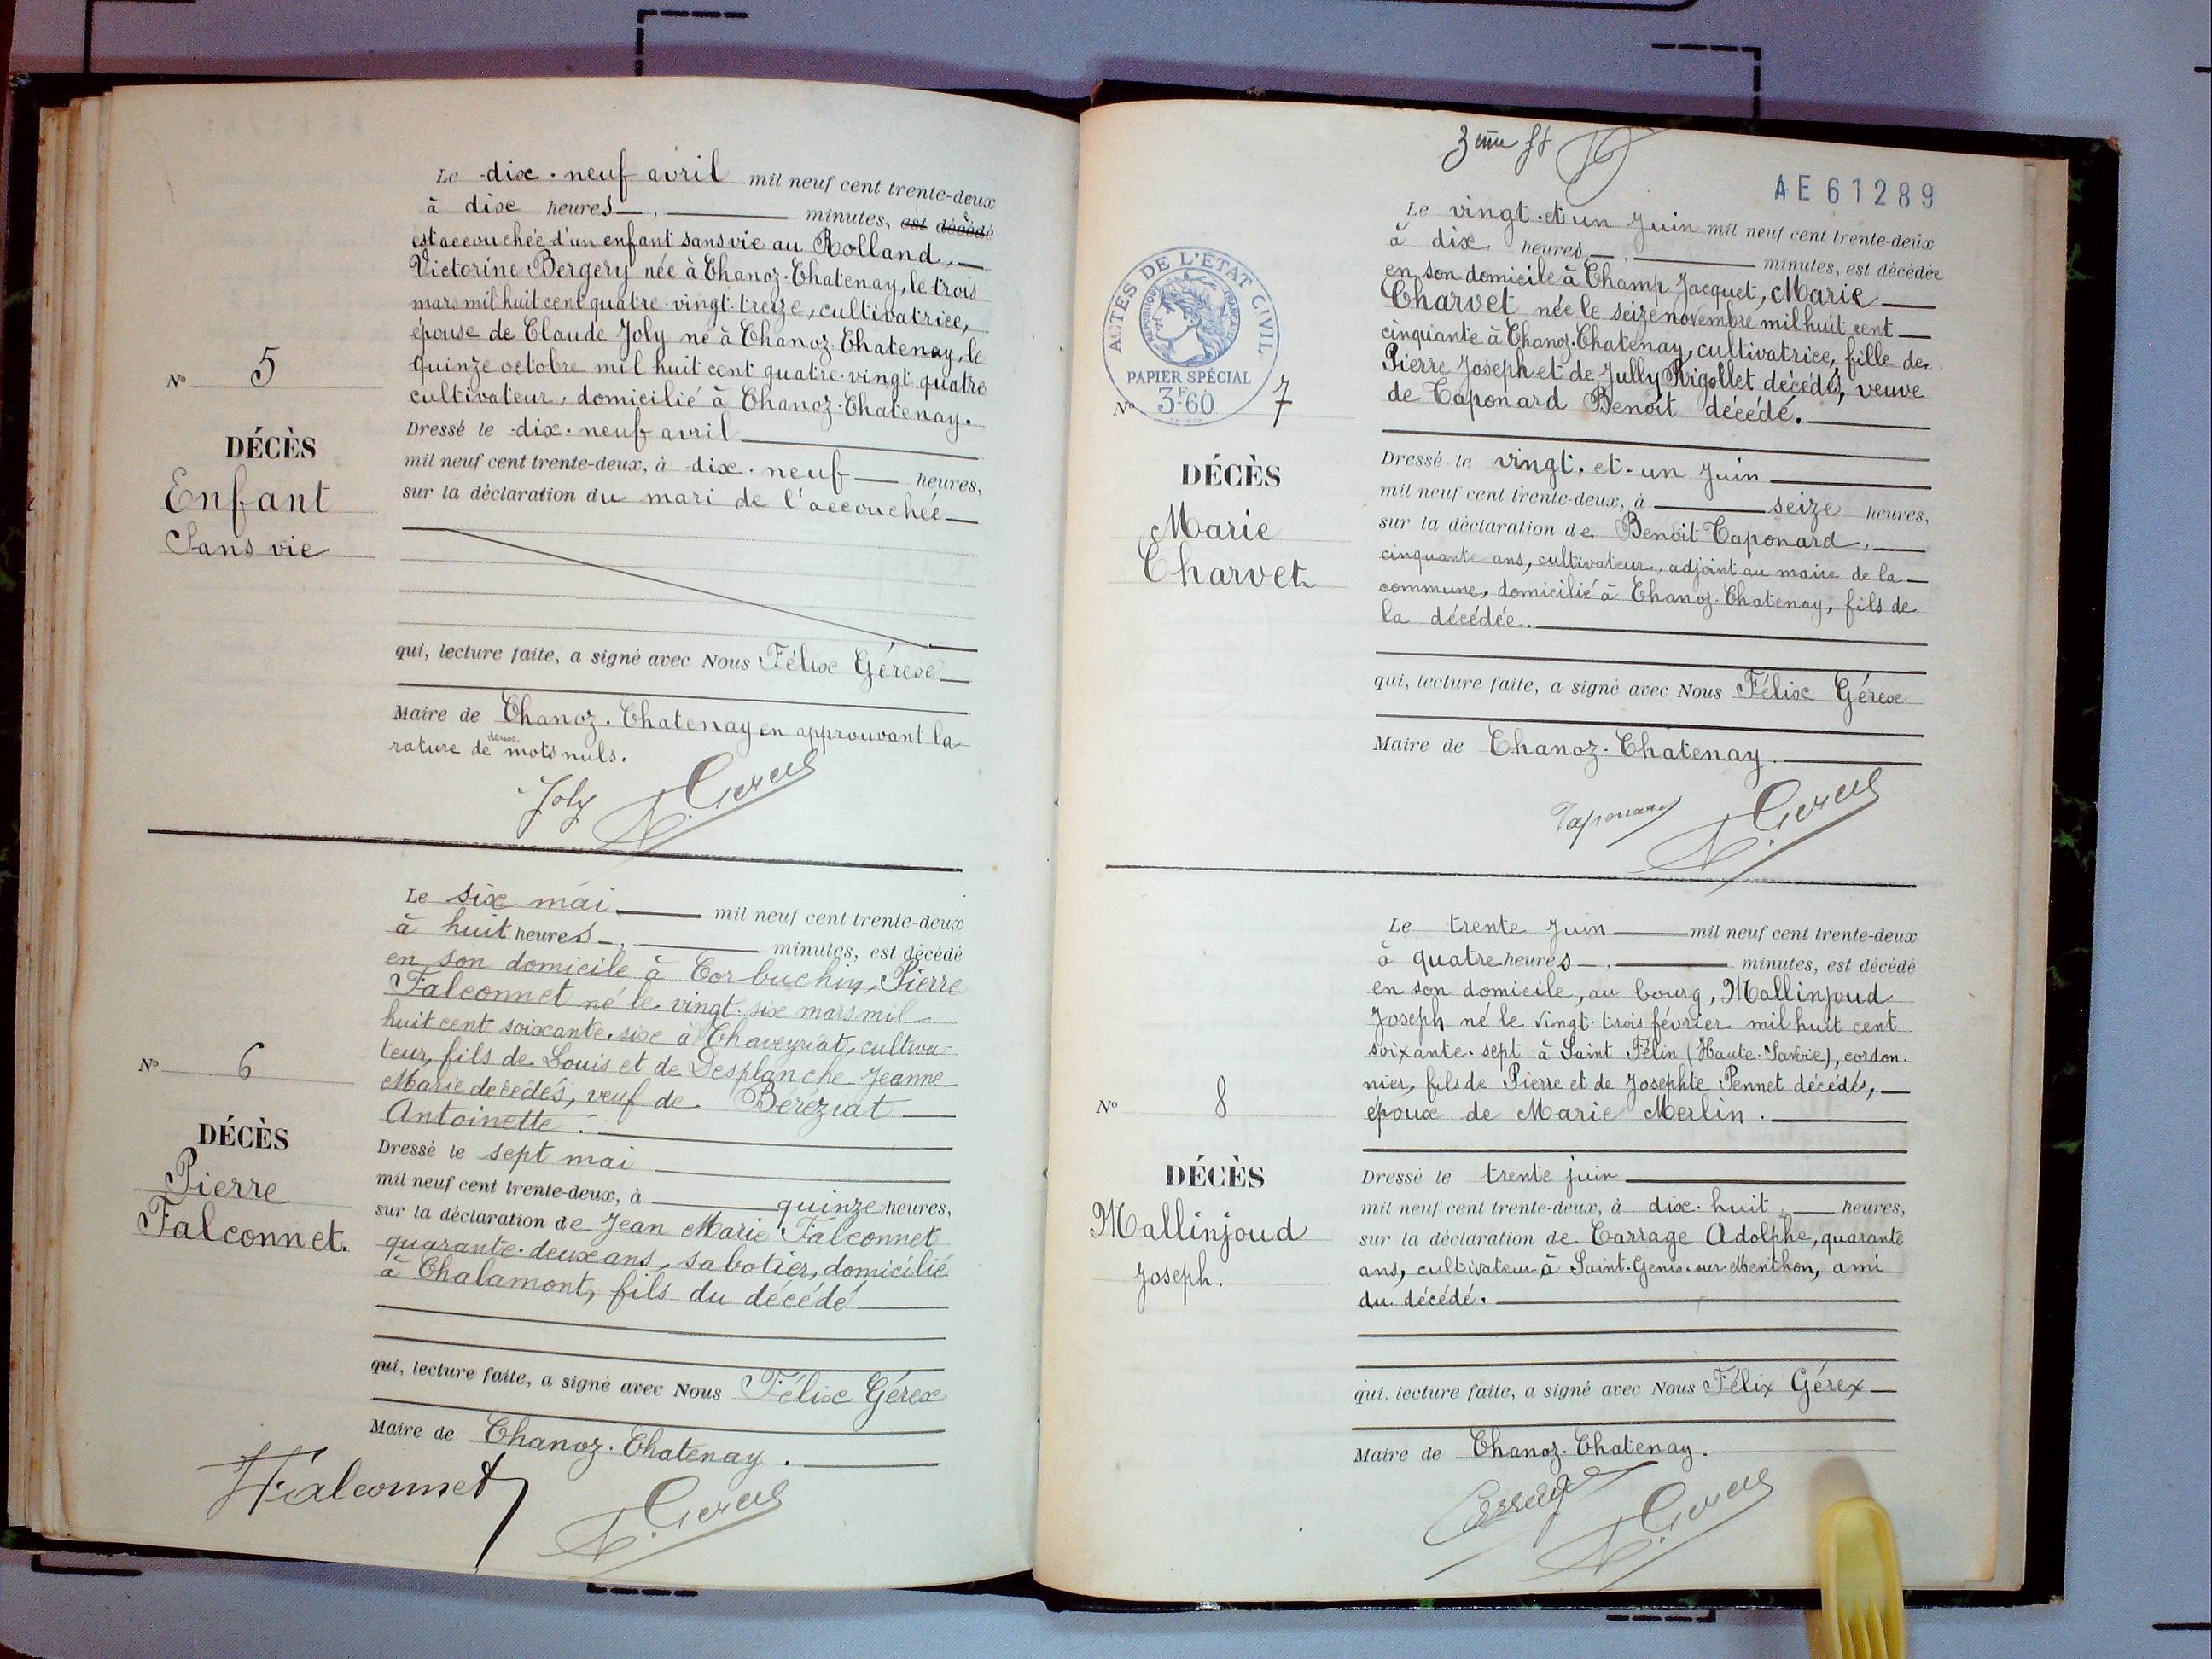 Le dix-neuf avril mil neuf cent trente-deux
à dix heures, minutes, est décédé
est accouchée d'un enfant sans vie au Rolland,
Victorine Bergery née à Chanoz-Chatenay, le trois
mars mil huit cent quatre-vingt-treize, cultivatrice,
épouse de Claude Joly né à Chanoz-Chatenay, le
quinze octobre mil huit cent quatre-vingt quatre
cultivateur, domicilié à Chanoz-Chatenay.
N° 5
DÉCÈS
Enfant
Sans vie
Dressé le dix-neuf avril
mil neuf cent trente-deux, à dix-neuf heures,
sur la déclaration du mari de l'accouchée
qui, lecture faite, a signé avec Nous Félix Gérex
Maire de Chanoz-Chatenay en approuvant la
rature de deux mots nuls.
Joly Gerex
Le six mai mil neuf cent trente-deux
à huit heures, minutes, est décédé
en son domicile à Corbuchin, Pierre
Falconnet né le vingt-six mars mil
huit cent soixante-six à Chaveyriat, cultiva-
teur, fils de Louis et de Desplanche Jeanne
Marie décédés, veuf de Béréziat
Antoinette.
N° 6
DÉCÈS
Pierre
Falconnet.
Dressé le sept mai
mil neuf cent trente-deux, à quinze heures,
sur la déclaration de Jean Marie Falconnet
quarante-deux ans, sabotier, domicilié
à Chalamont, fils du décédé
qui, lecture faite, a signé avec Nous Félix Gérex
Maire de Chanoz-Chatenay.
Falconnet Gerex
3ème ft
AE61289
Le vingt-et un Juin mil neuf cent trente-deux
à dix heures, minutes, est décédée
en son domicile à Champ Jacquet, Marie
Charvet née le seize novembre mil huit cent
cinquante à Chanoz-Chatenay, cultivatrice, fille de
Pierre Joseph et de Jully Rigollet décédés, veuve
de Taponard Benoît décédé.
ACTES DE L'ÉTAT CIVIL
RÉPUBLIQUE FRANÇAISE
PAPIER SPÉCIAL
3F60
N° 7
DÉCÈS
Marie
Charvet
Dressé le vingt-et-un Juin
mil neuf cent trente-deux, à seize heures,
sur la déclaration de Benoit Taponard,
cinquante ans, cultivateur, adjoint au maire de la
commune, domicilié à Chanoz-Chatenay, fils de
la décédée.
qui, lecture faite, a signé avec Nous Félix Gérex
Maire de Chanoz-Chatenay.
Taponard Gerex
Le trente Juin mil neuf cent trente-deux
à quatre heures, minutes, est décédé
en son domicile, au bourg, Mallinjoud
Joseph né le vingt-trois février mil huit cent
soixante-sept à Saint Félin (Haute-Savoie), cordon-
nier, fils de Pierre et de Josephte Pennet décédés,
époux de Marie Merlin.
N° 8
DÉCÈS
Mallinjoud
Joseph.
Dressé le trente juin
mil neuf cent trente-deux, à dix-huit heures,
sur la déclaration de Carrage Adolphe, quarante
ans, cultivateur à Saint-Genis-sur-Menthon, ami
du décédé.
qui, lecture faite, a signé avec Nous Félix Gérex
Maire de Chanoz-Chatenay.
Carrage Gerex